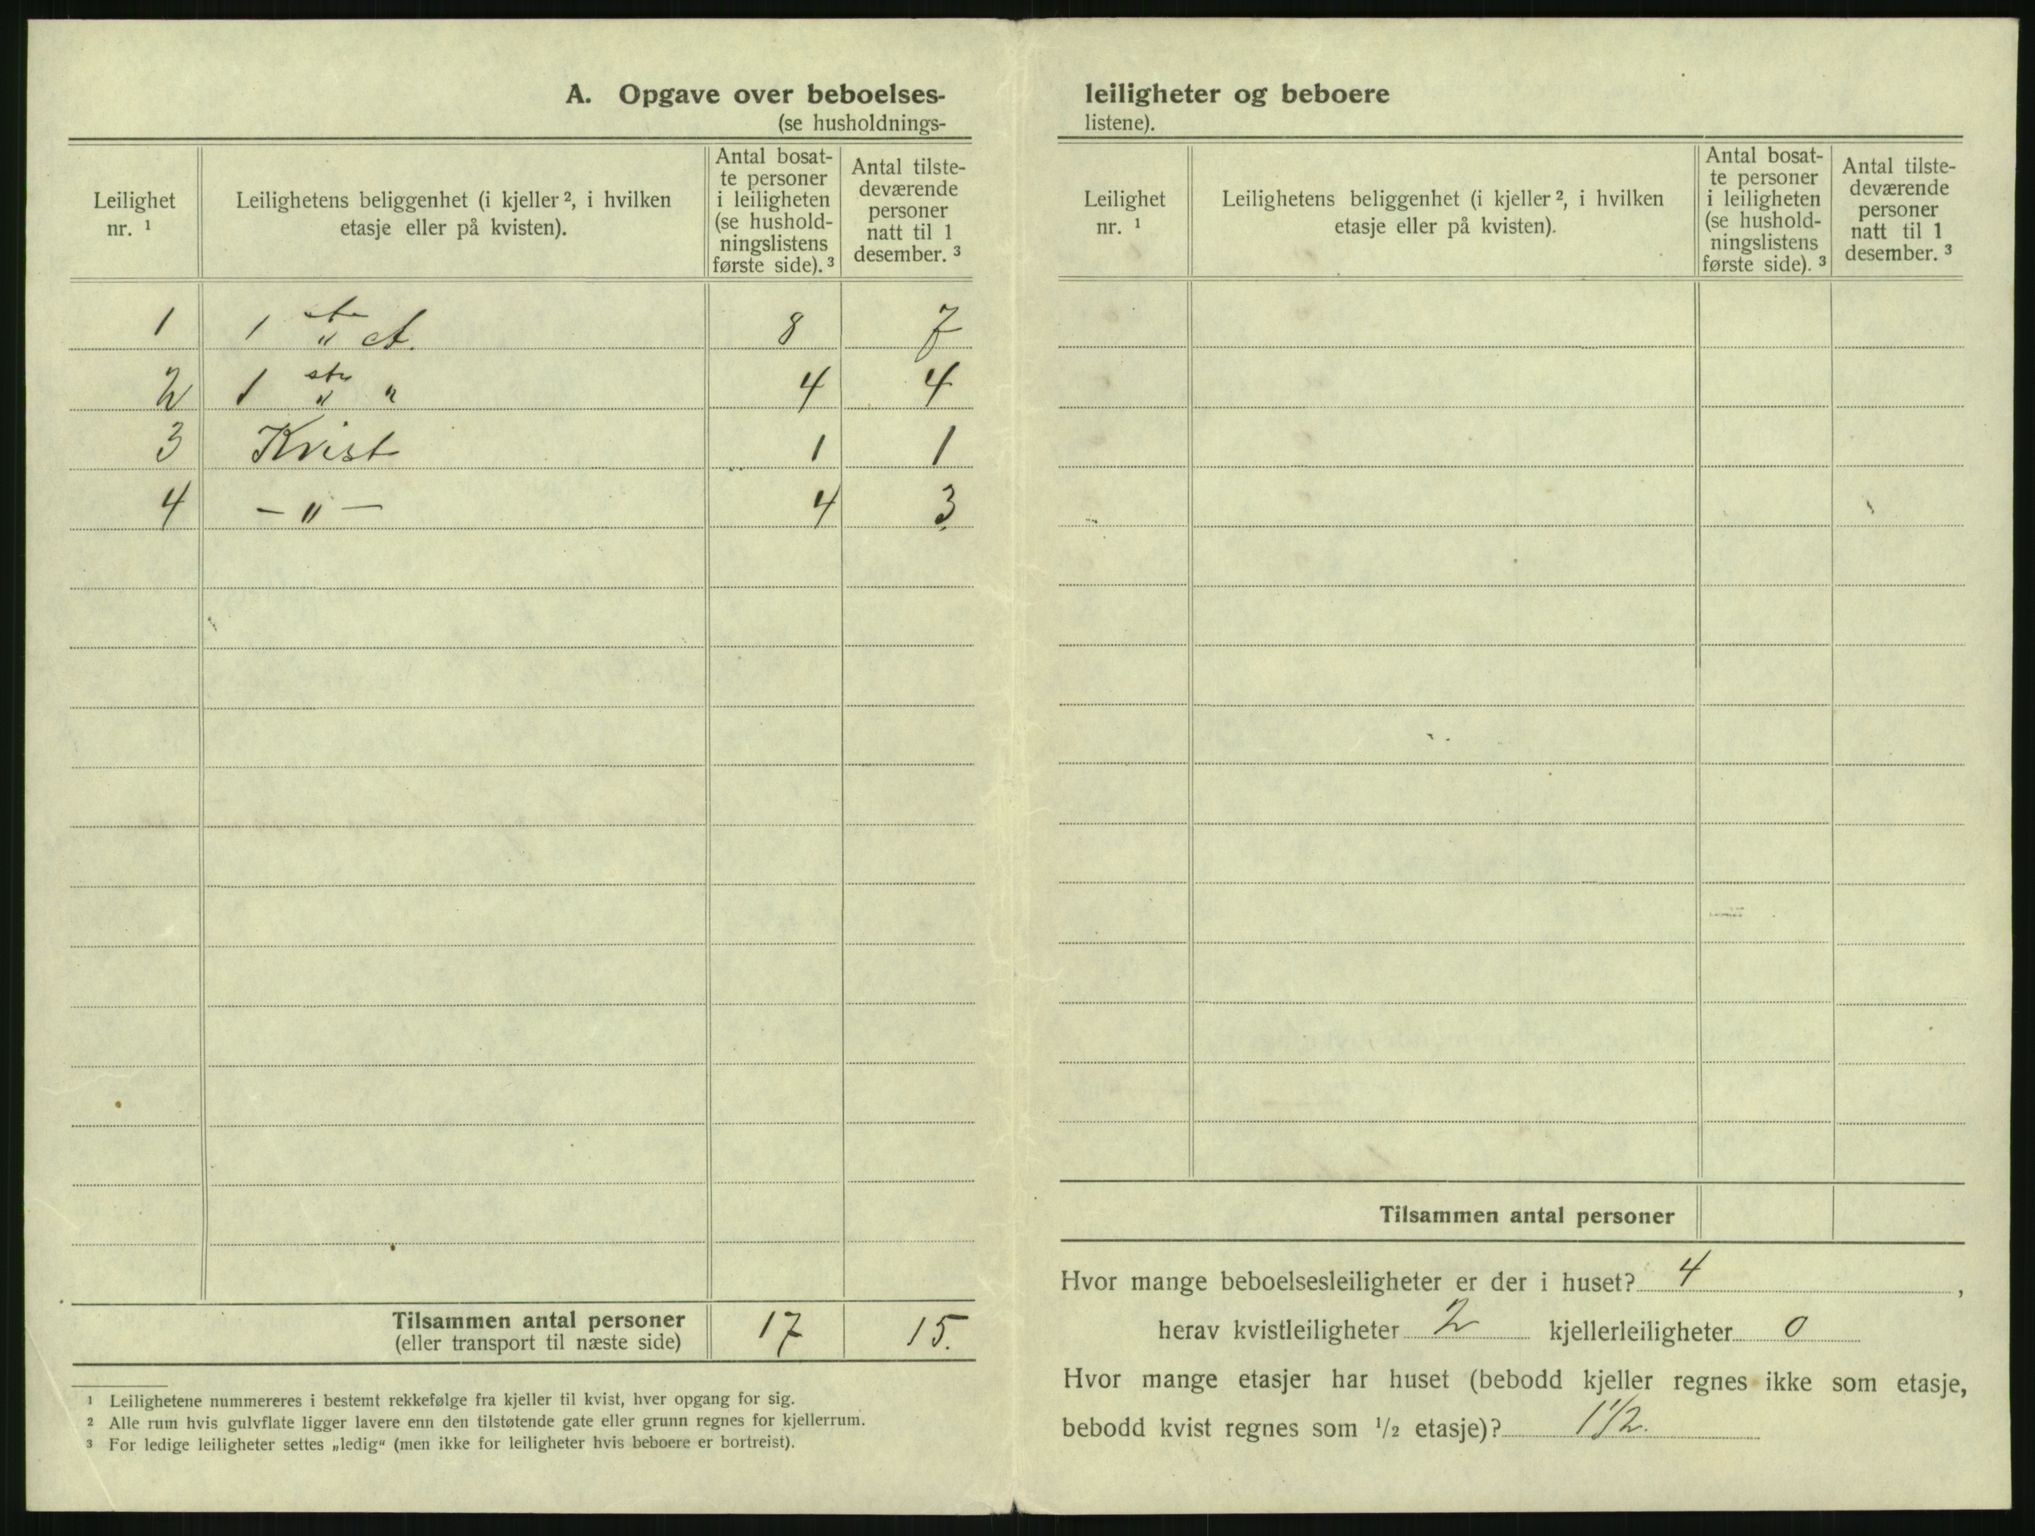 A. Opgave over beboelses-
(se husholdnings-
Leilighet nr. ¹
Leilighetens beliggenhet (i kjeller ², i hvilken etasje eller på kvisten).
Antal bosatte personer i leiligheten (se husholdningslistens første side). ³
Antal tilstedeværende personer natt til 1 desember. ³
1 1 ste " et. 8 7
2 1 ste " " 4 4
3 Kvist 1 1
4 — " — 4 3
Tilsammen antal personer 17 15.
(eller transport til næste side)
¹ Leilighetene nummereres i bestemt rekkefølge fra kjeller til kvist, hver opgang for sig.
² Alle rum hvis gulvflate ligger lavere enn den tilstøtende gate eller grunn regnes for kjellerrum.
³ For ledige leiligheter settes „ledig“ (men ikke for leiligheter hvis beboere er bortreist).
leiligheter og beboere
listene).
Leilighet nr. ¹
Leilighetens beliggenhet (i kjeller ², i hvilken etasje eller på kvisten).
Antal bosatte personer i leiligheten (se husholdningslistens første side). ³
Antal tilstedeværende personer natt til 1 desember. ³
Tilsammen antal personer
Hvor mange beboelsesleiligheter er der i huset? 4 ,
herav kvistleiligheter 2 kjellerleiligheter 0
Hvor mange etasjer har huset (bebodd kjeller regnes ikke som etasje,
bebodd kvist regnes som ½ etasje)? 1 1/2.